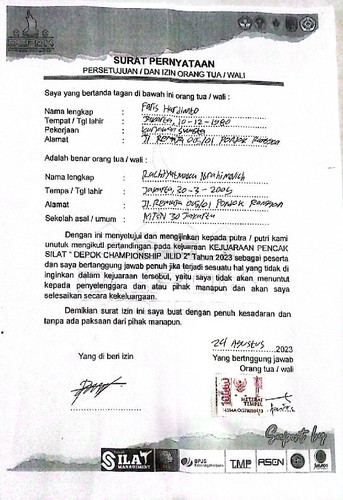 SURAT PERNYATAAN
PERSETUJUAN / DAN IZIN ORANG TUA / WALI
Saya yang bertanda tagan di bawah ini orang tua / wali :
Nama lengkap : Faris Hardinto
Tempat / Tgl lahir : Jakarta, 10-12-1980
Pekerjaan : karyawan swasta
Alamat : Jl. Remaja 005/01 Pondok
Adalah benar orang tua / wali :
Nama lengkap : Ibrahimovich
Tempa / Tgl lahir : Jakarta, 20-3-2005
Alamat : Jl. Remaja 005/01 Pondok
Sekolah asal / umum : MTSN 30 Jakarta
Dengan ini menyetujui dan mengijinkan kepada putra / putri kami
untuk mengikuti pertandingan pada kejuaraan KEJUARAAN PENCAK
SILAT " DEPOK CHAMPIONSHIP JILID 2" Tahun 2023 sebagai peserta
dan saya bertanggung jawab penuh jika terjadi sesuatu hal yang tidak di
inginkan dalam kejuaraan tersebut, yaitu saya tidak akan menuntut
kepada penyelenggara dan atau pihak manapun dan akan saya
selesaikan secara kekeluargaan.
Demikian surat izin ini saya buat dengan penuh kesadaran dan
tanpa ada paksaan dari pihak manapun.
24 Agustus 2023
Yang di beri izin
Yang bertnggung jawab
Orang tua / wali
10000
METERAI
TEMPEL
Suport by
SILAT
MANAGEMENT
BPJS
Ketenagakerjaan
TMP